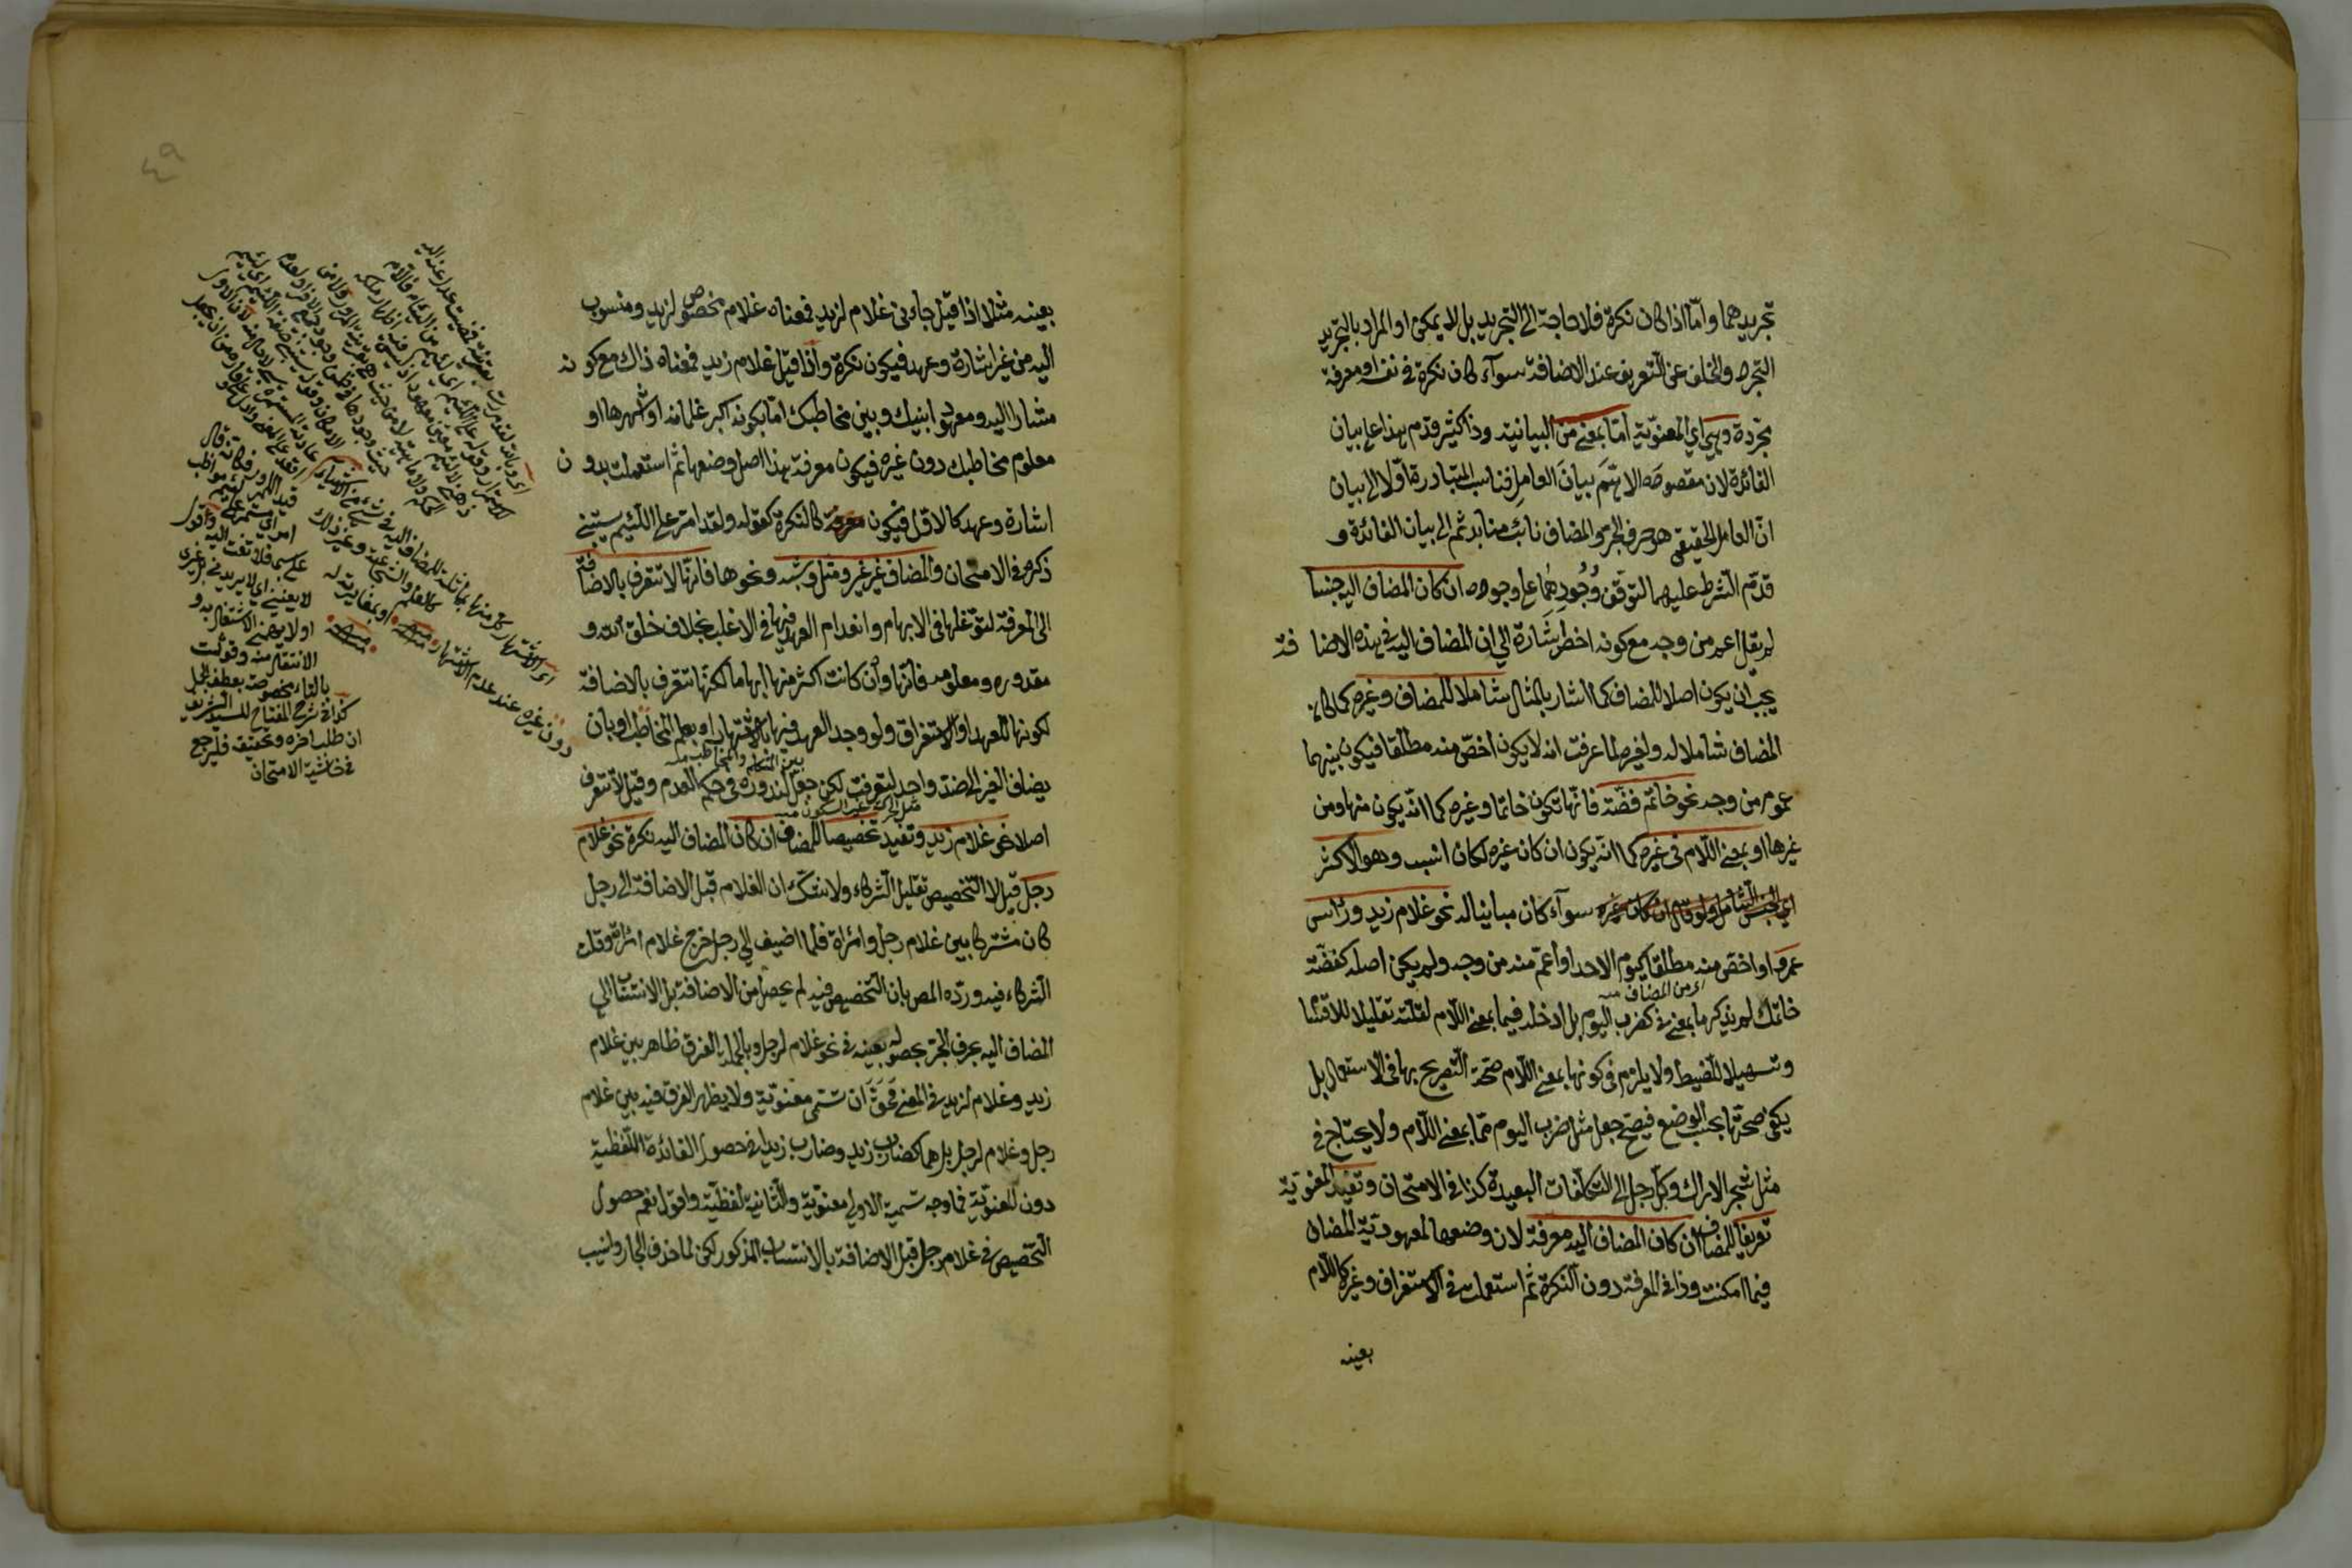 تجريدهما واما اذا كان نكرة فلا حاجة الى التجريد بل لا يمكن او المراد بالتجريد
التجرد والخلو عن التعريف عند الاضافة سوآء كان نكرة في نفسه او معرفة
مجردة وهي اي المعنوية اما بمعنى من البيانية وذا كثير قدم هذا على بيان
الفائدة لان مقصوده الاهم بيان العامل فناسب المبادرة اولا الى بيان
ان العامل الحقيقي هو حرف الجر والمضاف نائب منابه ثم الى بيان الفائدة و
قدم الشرط عليهما لتوقف وجودهما على وجوده ان كان المضاف اليه جنسا
لم يقل اعم من وجه مع كونه اخطر اشارة الى ان المضاف اليه في هذه الاضافة
يجب ان يكون اصلا للمضاف كما اشار بالمثال شاملا للمضاف وغيره كما كان
المضاف شاملا له ولغيره لما عرفت انه لا يكون اخص منه مطلقا فيكون بينهما
عموم من وجه نحو خاتم فضة فانها تكون خاتما وغيره كما انه يكون منها ومن
غيرها او بمعنى اللام في غيره كما انه يكون ان كان غيره لكان انسب وهو الاكثر
اي الجنس الشامل ولو قال ان كان غيره سوآء كان مباينا له نحو غلام زيد ورأس
عمرو او اخص منه مطلقا كيوم الاحد او اعم منه من وجه ولم يكن اصله كفضة
اي من المضاف منه
خاتمك لم يذكر ما بمعنى في كضرب اليوم بل ادخله فيما بمعنى اللام لقلته تقليلا للاقسام
وتسهيلا للضبط ولا يلزم في كونها بمعنى اللام صحة التصريح بها في الاستعمال بل
يكفي صحتها بحسب الوضع فيصح جعل مثل ضرب اليوم مما بمعنى اللام ولا يحتاج في
مثل شجر الاراك وكل رجل الى التكلفات البعيدة كذا في الامتحان وتفيد المعنوية
تعريفا للمضاف ان كان المضاف اليه معرفة لان وضعها لمعهودية المضاف
فيما امكنت وذا في المعرفة دون النكرة ثم استعملت في الاستغراق وغيره كاللام
بعينه
٤٩
بعينه مثلا اذا قيل جاءني غلام لزيد فمعناه غلام مخصوص لزيد ومنسوب
اليه من غير اشارة وعهد فيكون نكرة واذا قيل غلام زيد فمعناه ذاك مع كونه
مشارا اليه ومعهودا بينك وبين مخاطبك اما بكونه اكبر غلمانه او اشهرها او
معلوم مخاطبك دون غيره فيكون معرفة هذا اصل وضعها ثم استعملت بدون
اشارة وعهد كالاول فيكون معرفة كالنكرة كقوله ولقد امر على اللئيم يسبني
ذكره في الامتحان والمضاف غير غير ومثل وشبه ونحوها فانها لا تتعرف بالاضافة
الى المعرفة لتوغلها في الابهام وانعدام العهد فيها في الاغلب بخلاف خلق الله و
مقدوره ومعلومه فانها وان كانت اكثر منها ابهاما لكنها تتعرف بالاضافة
لكونها للعهد او الاستغراق ولو وجد العهد فيها بالاشتهار او بعلم المخاطب او بان
بين المتكلم والمخاطب منه
يضاف الغير الى ضد واحد لتعرفت لكن جعل لندوره في حكم العدم وقيل لا تتعرف
مثل الحركة غير السكون منه
اصلا نحو غلام زيد وتفيد تخصيصا للمضاف ان كان المضاف اليه نكرة نحو غلام
رجل قيل لا التخصيص تقليل الشركاء ولا شك ان الغلام قبل الاضافة الى رجل
كان مشتركا بين غلام رجل وامرأة فلما اضيف الى رجل خرج غلام امرأة وقلت
الشركاء فيه ورده المص بان التخصيص فيه لم يحصل من الاضافة بل الانتساب الى
المضاف اليه بحرف الجر بحصوله بعينه في نحو غلام لرجل وبالجملة الفرق ظاهر بين غلام
زيد وغلام لزيد في المعنى فحق ان تسمى معنوية ولا يظهر الفرق فيه بين غلام
رجل وغلام لرجل بل هما كضارب زيد وضارب زيدا في حصول الفائدة اللفظية
دون المعنوية فما وجه تسمية الاولى معنوية والثانية لفظية واقول نعم حصول
التخصيص في غلام رجل قبل الاضافة بالانتساب المذكور لكن لما حذف الجار ونسب
قيد المرور فكانه قال
امر اي مستمر على مواظب
على سبه فلا تلتفت اليه واقول
لا يعنيني اي لا يريدني بل غيري
او لا يهمني الاشتغال به و
الانتقام منه وقولت
بالتاء مخصوصة بعطف الجمل
كذا في شرح المفتاح للسيد الشريف
ان طلب اخره وتحقيقه فليرجع
في حاشية الامتحان
دون غيره عند عدم الاشتهار منه